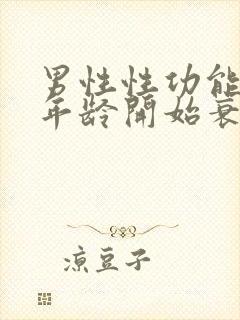 男性性功能
年龄開始衰
涼豆子